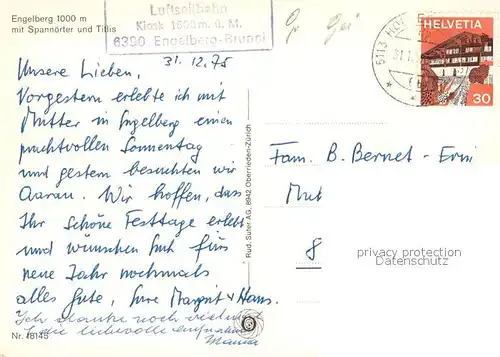 Engelberg 1000 m
mit Spannörter und Titlis
Luftseilbahn
Kiosk 1600 m. ü. M.
6390 Engelberg-Brunni
HELVETIA
30
31.12.75
Unsere Lieben,
Vorgestern erlebte ich mit
Mutter in Engelberg einen
prachtvollen Sonnentag
und gestern besuchten wir
Aarau. Wir hoffen, dass
Ihr schöne Festtage erlebt
und wünschen Euch fürs
neue Jahr nochmals
alles Gute, Eure Margrit & Hans.
Ich danke noch vielmal
für die liebevolle
Mama
Fam. B. Bernet-Erni
8
Rud. Suter AG, 8942 Oberrieden-Zürich
privacy protection
Datenschutz
Nr. 18145